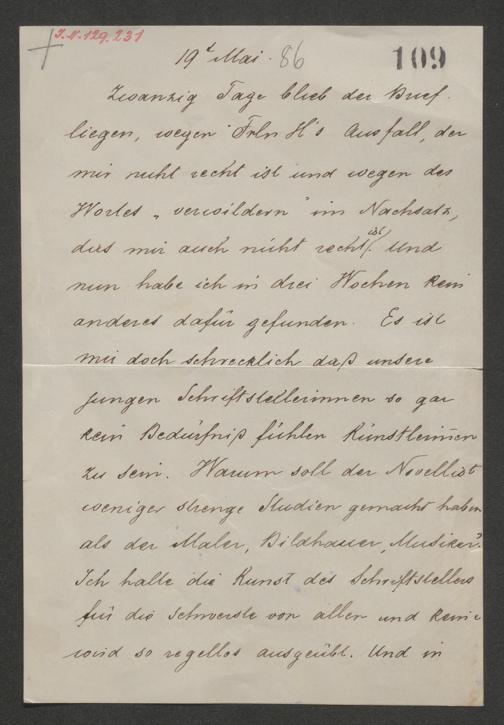 I.N. 129.231
19t Mai. 86
109
Zwanzig Tage blieb der Brief
liegen, wegen Frln H's Ausfall, der
mir nicht recht ist und wegen des
Wortes „verwildern" im Nachsatz,
das mir auch nicht recht ist. Und
nun habe ich in drei Wochen kein
anderes dafür gefunden. Es ist
mir doch schrecklich daß unsere
jungen Schriftstellerinnen so gar
kein Bedürfniß fühlen Künstlerinen
zu sein. Warum soll der Novellist
weniger strenge Studien gemacht haben
als der Maler, Bildhauer, Musiker?
Ich halte die Kunst des Schriftstellers
für die schwerste von allen und keine
wird so regellos ausgeübt. Und in